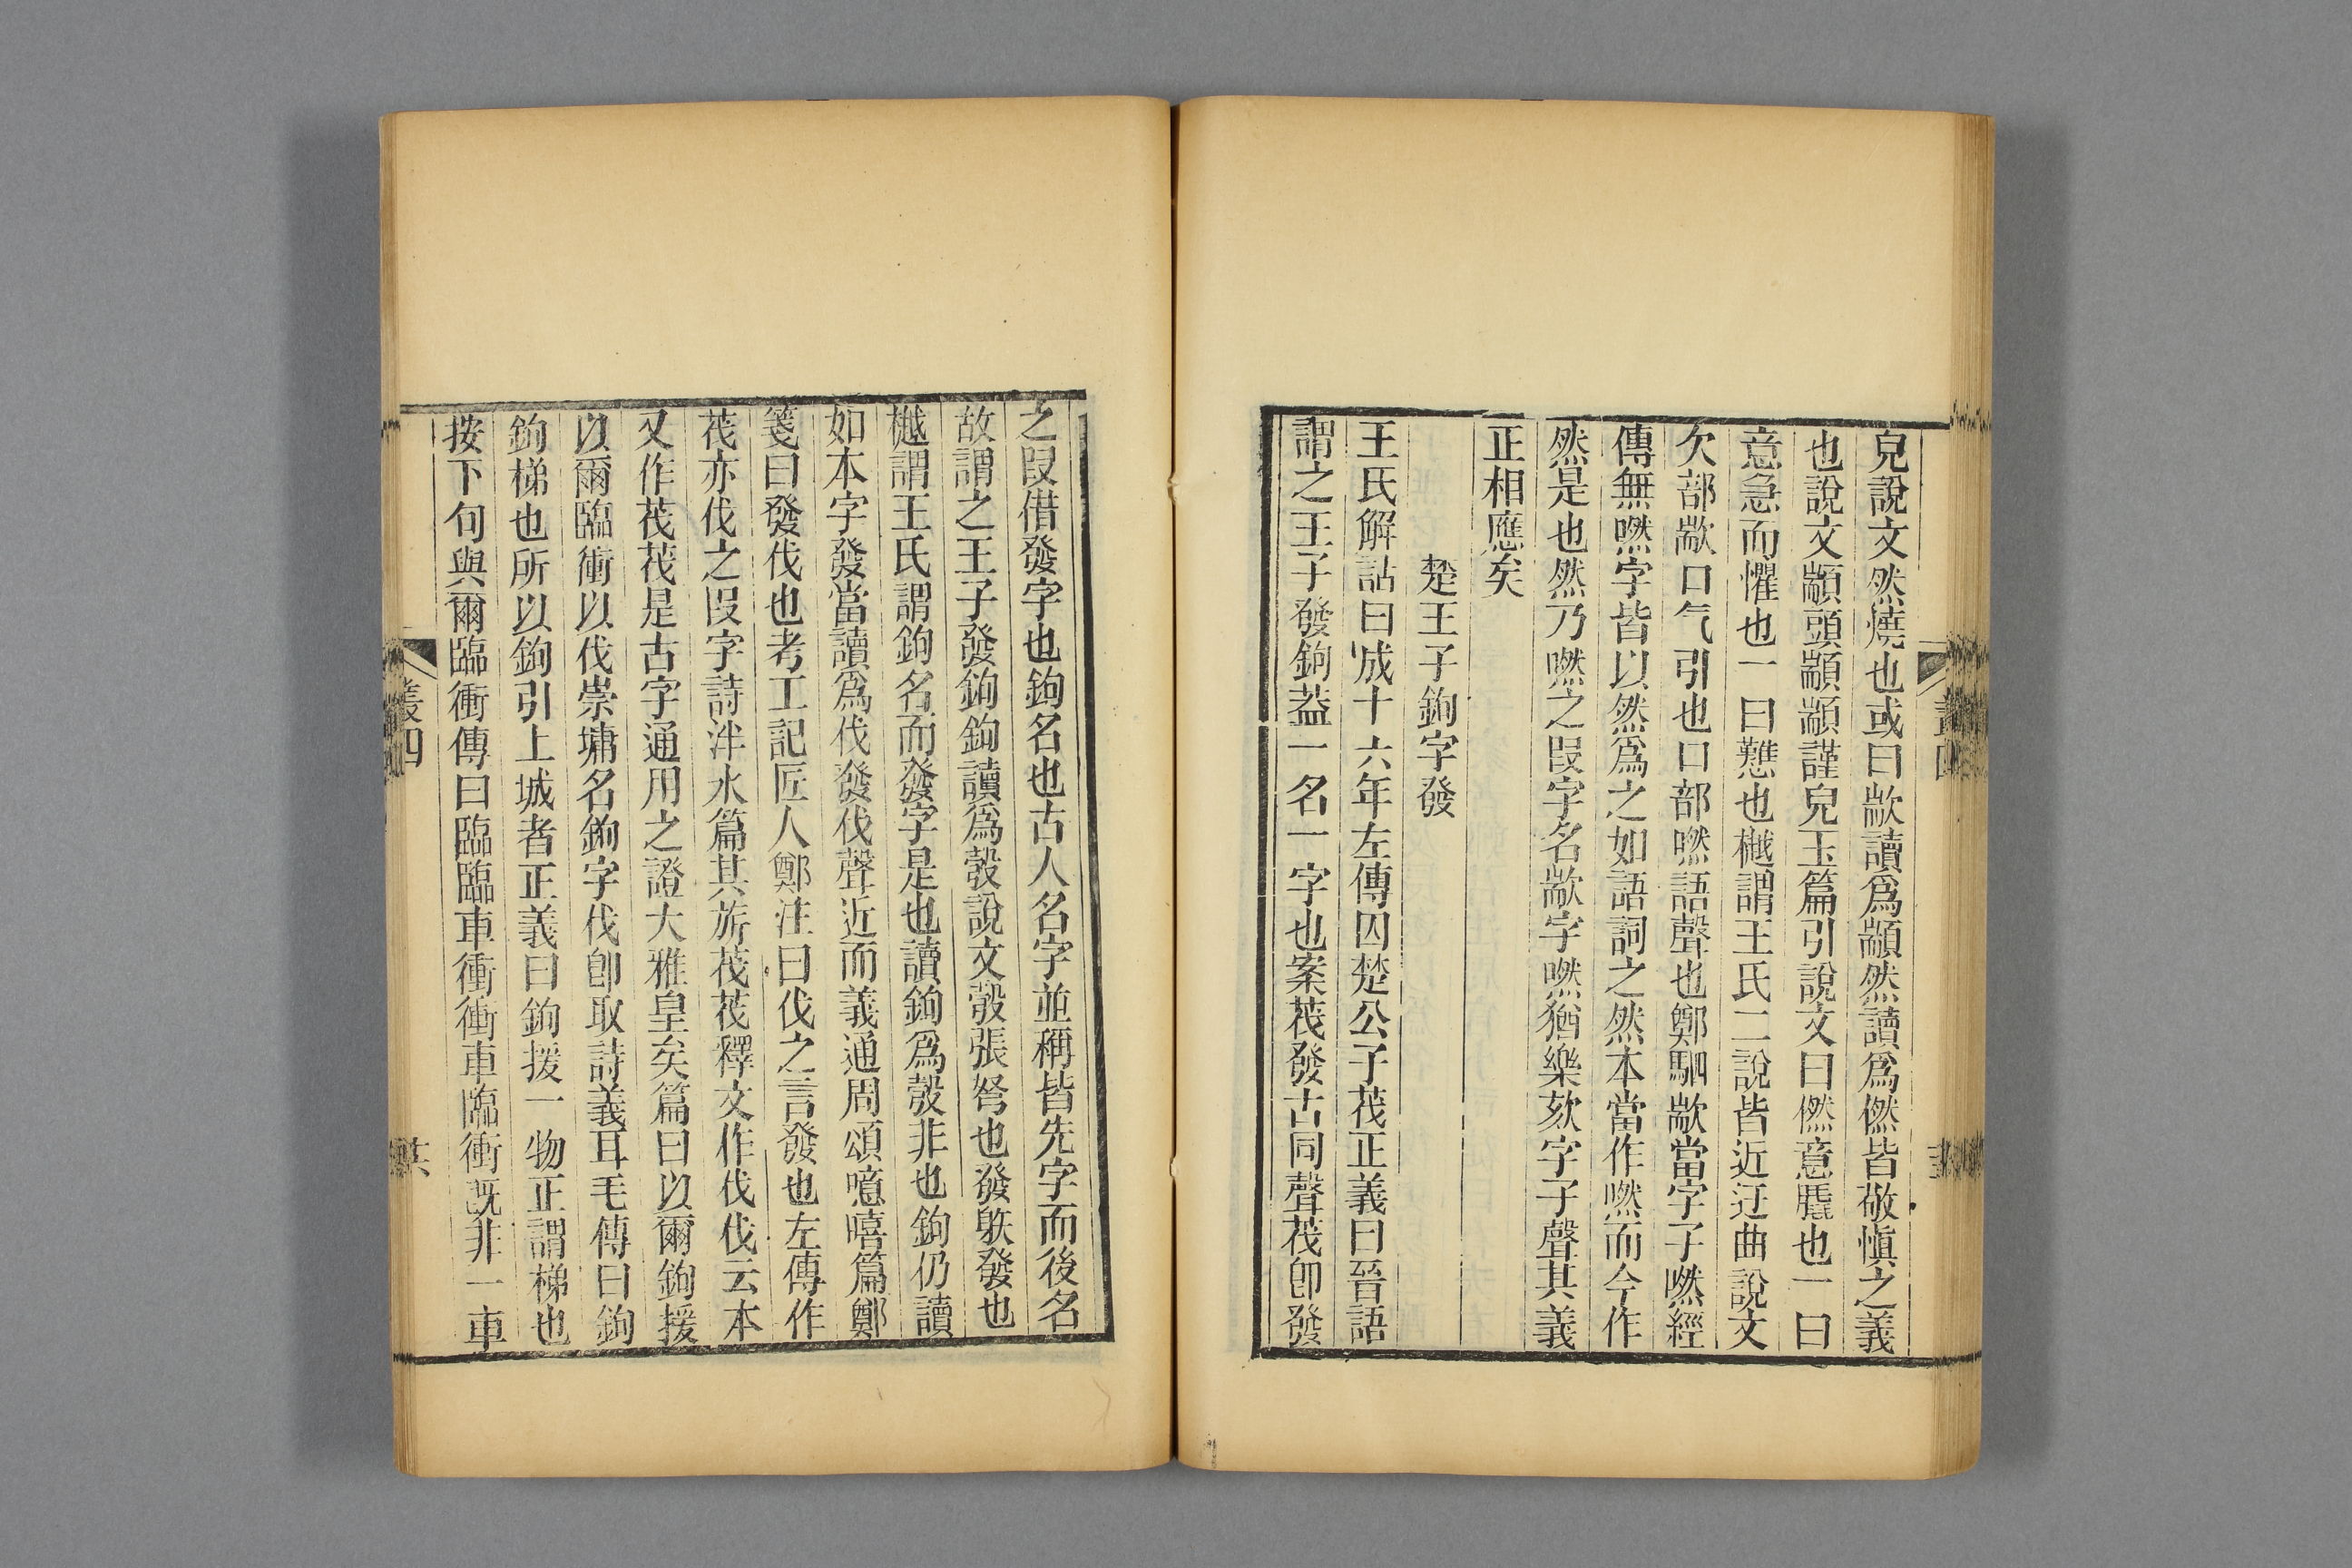 皃說文然燒也或曰歂讀爲顓然讀爲㒄皆敬愼之義
也說文顓頭顓顓謹皃玉篇引說文曰㒄意膬也一曰
意急而懼也一曰戁也樾謂王氏二說皆近迂曲說文
欠部歂口气引也口部嘫語聲也鄭駟歂當字子嘫經
傳無嘫字皆以然爲之如語詞之然本當作嘫而今作
然是也然乃嘫之叚字名歂字嘫猶樂欬字子聲其義
正相應矣
楚王子鉤字發
王氏解詁曰成十六年左傳囚楚公子茷正義曰晉語
謂之王子發鉤葢一名一字也案茷發古同聲茷卽發
之叚借發字也鉤名也古人名字並稱皆先字而後名
故謂之王子發鉤鉤讀爲彀說文彀張弩也發䠶發也
樾謂王氏謂鉤名而發字是也讀鉤爲彀非也鉤仍讀
如本字發當讀爲伐發伐聲近而義通周頌噫嘻篇鄭
箋曰發伐也考工記匠人鄭注曰伐之言發也左傳作
茷亦伐之叚字詩泮水篇其旂茷茷釋文作伐伐云本
又作茷茷是古字通用之證大雅皇矣篇曰以爾鉤援
以爾臨衝以伐崇墉名鉤字伐卽取詩義耳毛傳曰鉤
鉤梯也所以鉤引上城者正義曰鉤援一物正謂梯也
按下句與爾臨衝傳曰臨臨車衝衝車臨衝旣非一車
叢四
共